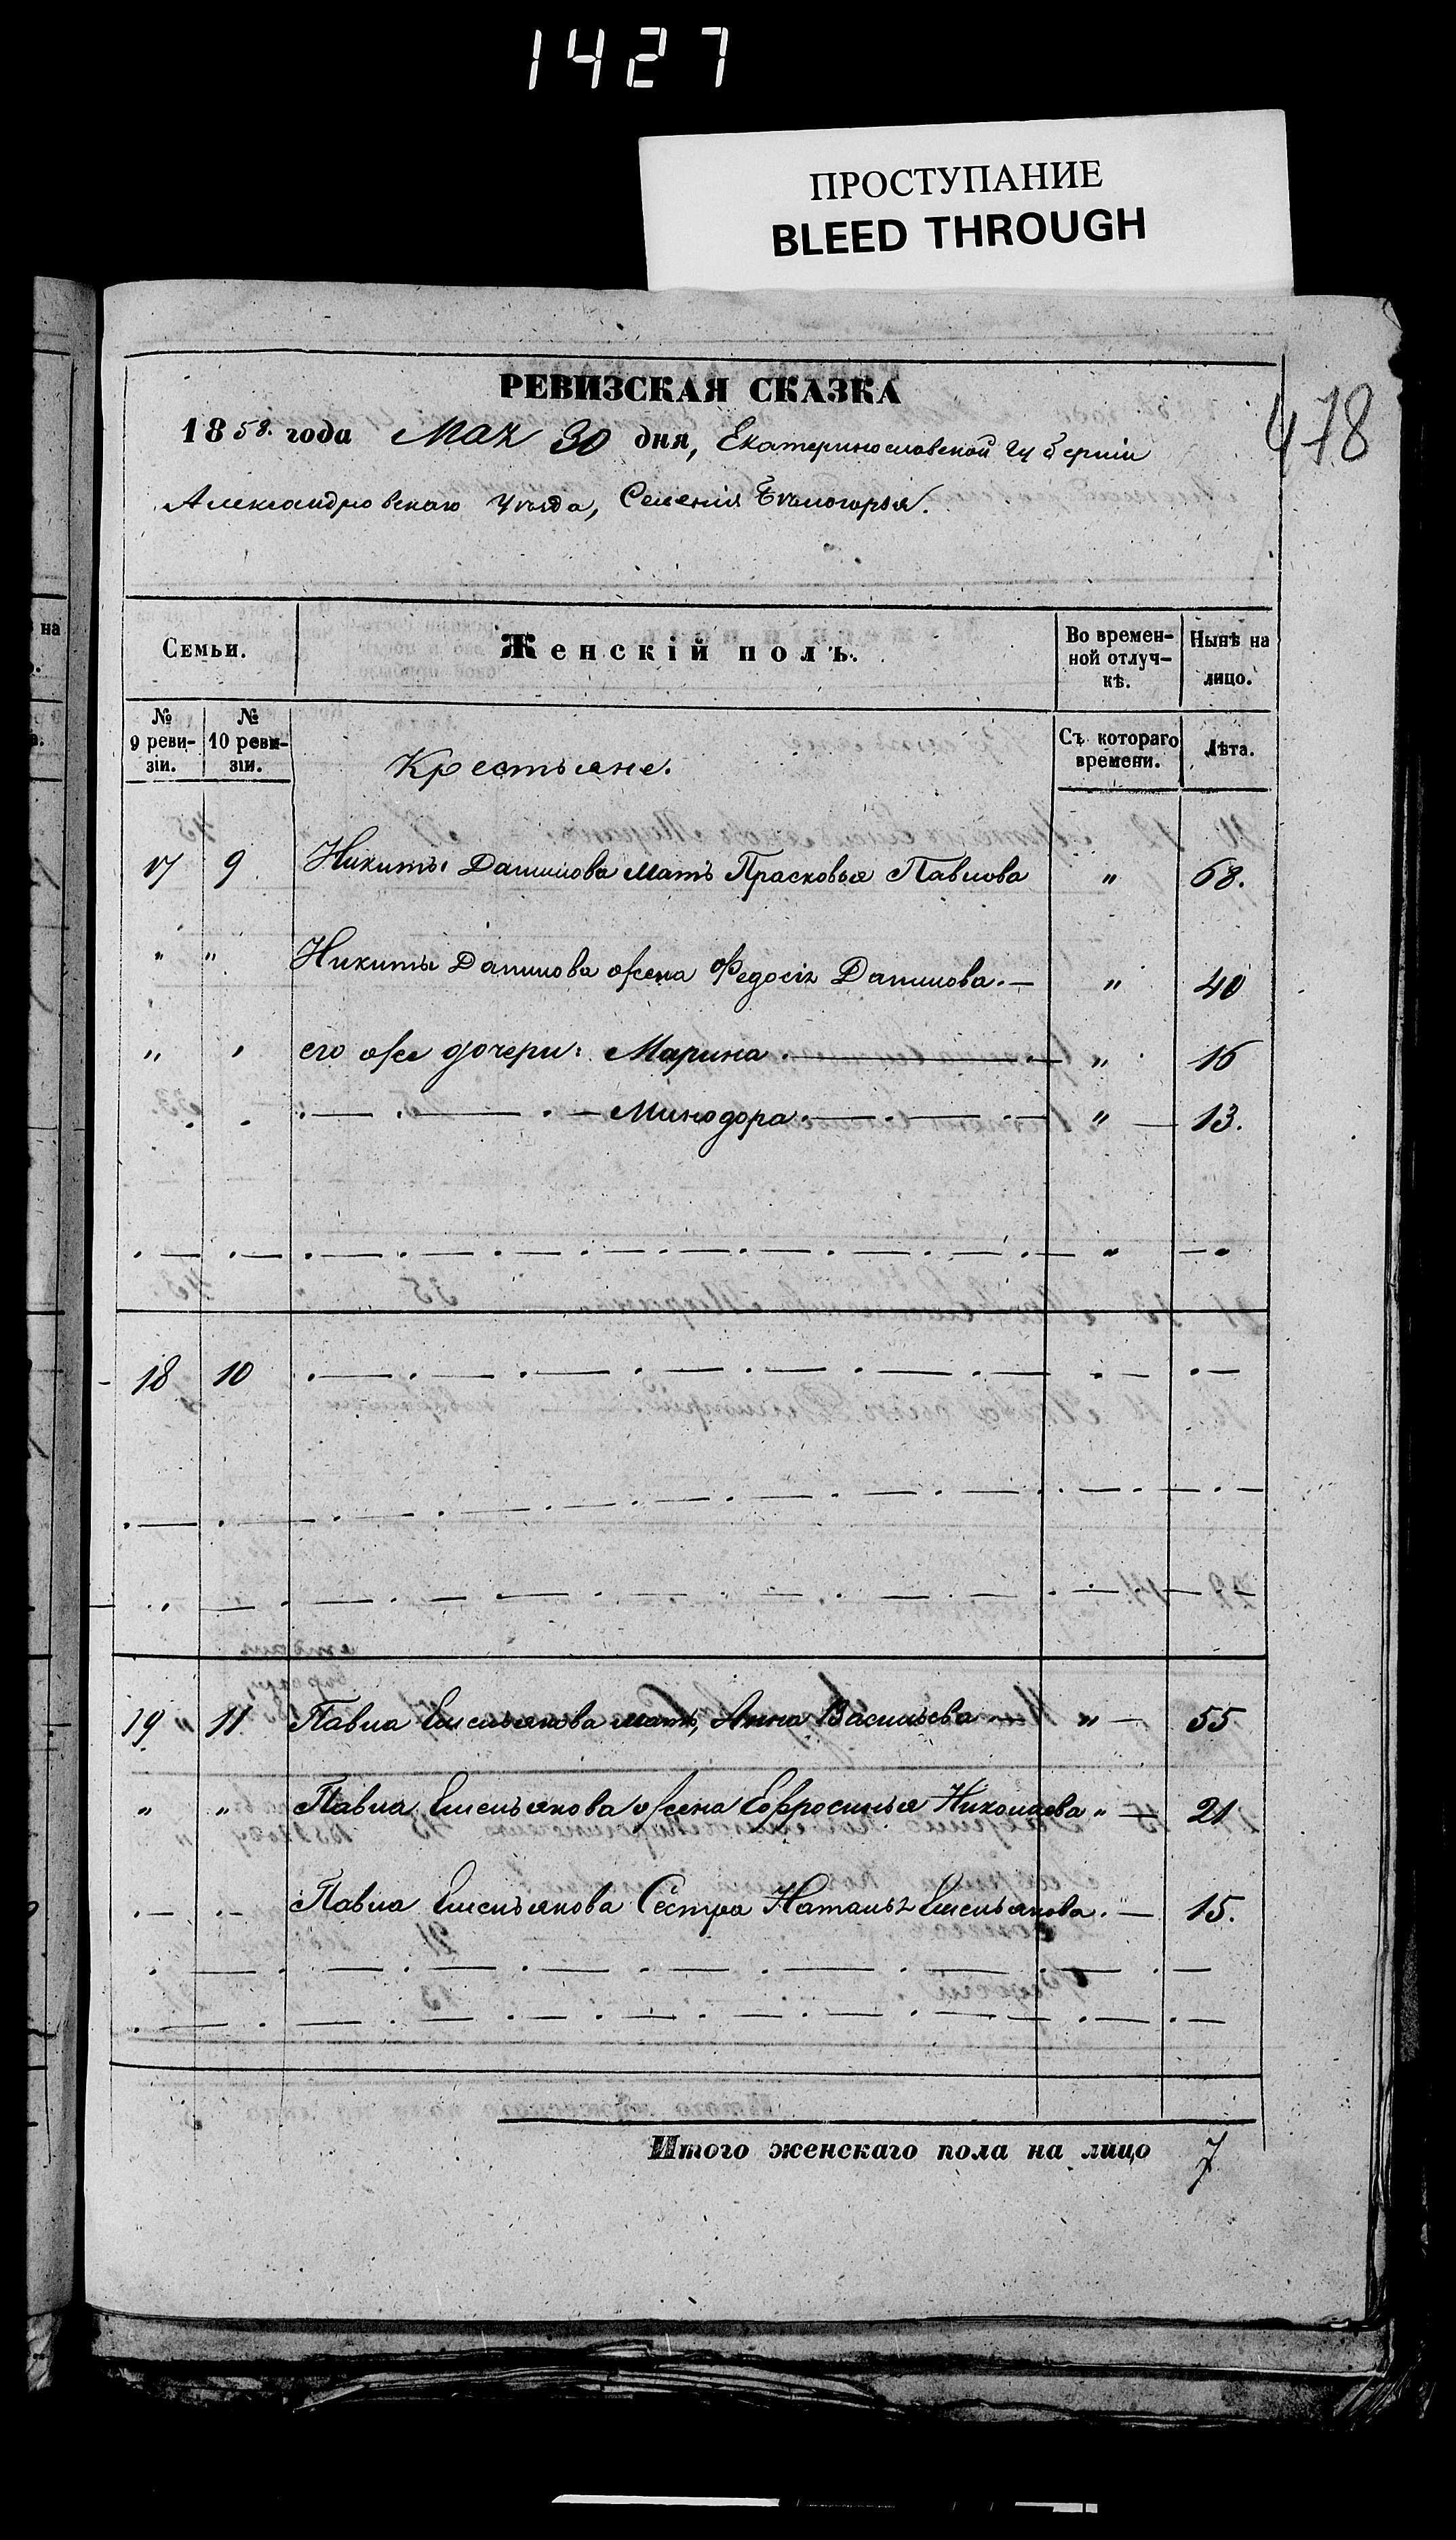 1427
ПРОСТУПАНИЕ
BLEED THROUGH
478
РЕВИЗСКАЯ СКАЗКА
1858. года Мая 30 дня, Екатеринославской губерніи
Александровскаго уѣзда, Селенія Бѣлогорья.
Семьи. Женскій полъ. Во времен- Нынѣ на
ной отлуч- лицо.
кѣ.
№ № Съ котораго Лѣта.
9 реви- 10 реви- времени.
зіи. зіи.
Крестьяне.
17 9 Никиты Данилова мать Прасковья Павлова " 68.
" " Никиты Данилова жена Федосія Данилова. — " 40
" " его же дочери: Марина. — " 16
Минодора. — " 13.
18 10
19 11 Павла Емельянова мать, Анна Васильева " — 55
" " Павла Емельянова жена Ефросинья Николаева " — 21
Павла Емельянова Сестра Наталья Емельянова. " — 15.
Итого женскаго пола на лицо 7